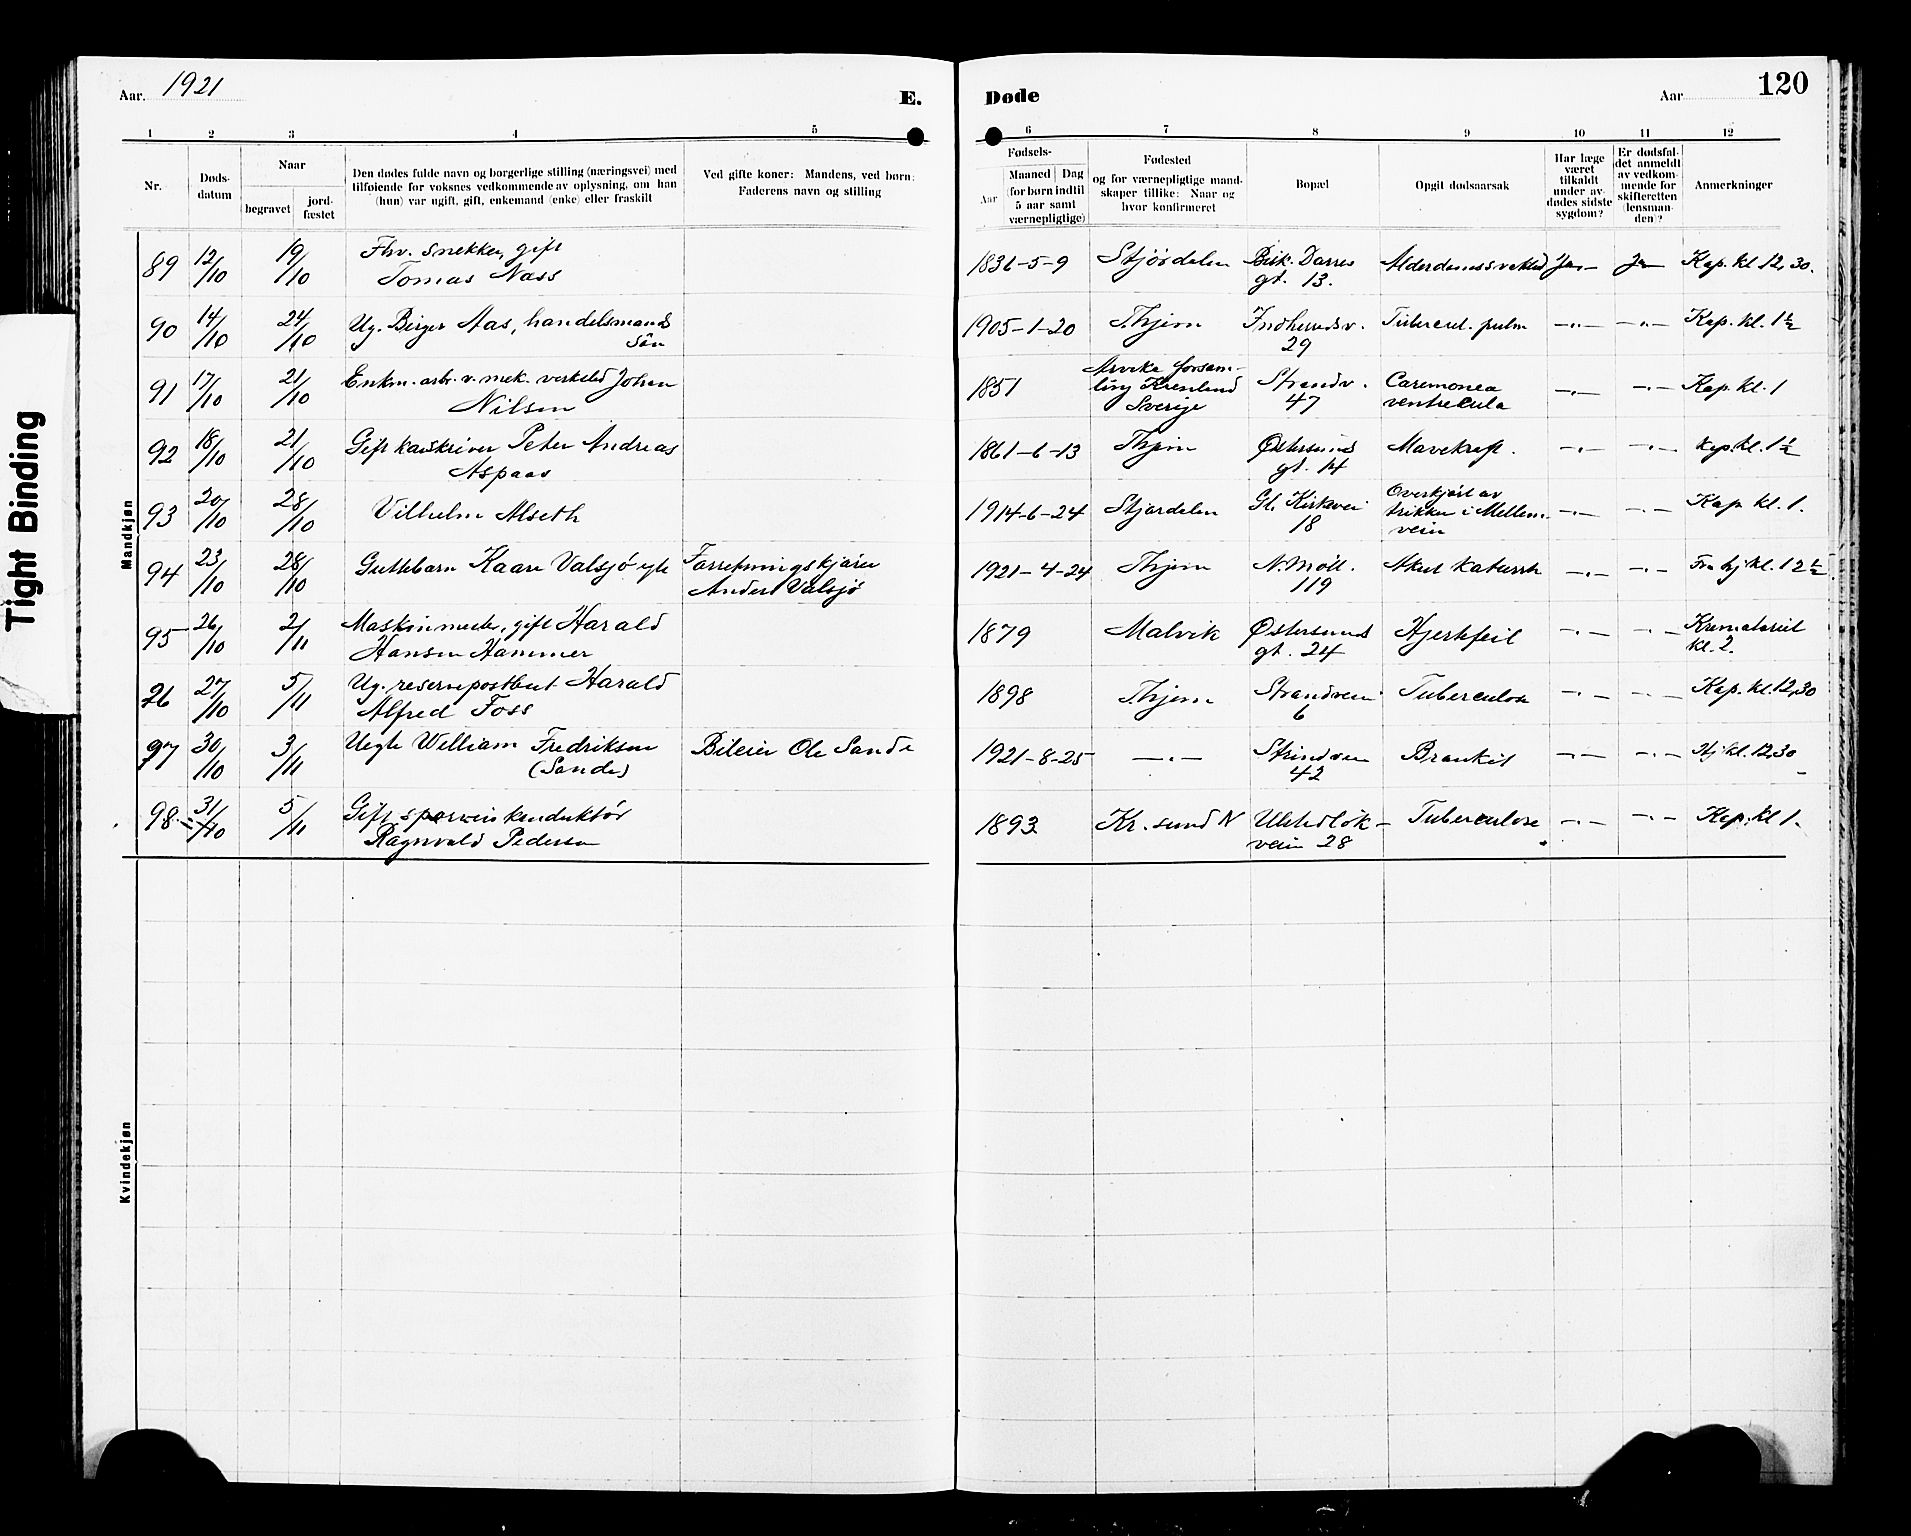 Tight Binding
Aar. 1921
E.
Døde
Aar
120
1 2 3 4 5 6 7 8 9 10 11 12
Nr.
Døds-
datum
Naar
begravet
jord-
fæstet
Den dødes fulde navn og borgerlige stilling (næringsvei) med
tilføiende for voksnes vedkommende av oplysning, om han
(hun) var ugift, gift, enkemand (enke) eller fraskilt
Ved gifte koner: Mandens, ved børn:
Faderens navn og stilling
Fødsels-
Aar
Maaned Dag
(for børn indtil
5 aar samt
værnepligtige)
Fødested
og for værnepligtige mand-
skaper tillike: Naar og
hvor konfirmeret
Bopæl
Opgit dødsaarsak
Har læge
været
tilkaldt
under av-
dødes sidste
sygdom?
Er dødsfal-
det anmeldt
av vedkom-
mende for
skifteretten
(lensman-
den)?
Anmerkninger
Mandkjøn
89 12/10 19/10 Fhv. snekker, gift
Tomas Næss
1831-5-9 Stjørdalen Bisk. Darres
gt. 13.
Alderdomssvakhed Ja - Ja Kap. kl 12,30.
90 14/10 24/10 Ug. Birger Aas, handelsmands
Søn
1905-1-20 Thjem Indherredsv.
29
Tubercul. pulm -"- -"- Kap. kl. 1½
91 17/10 21/10 Enkm. arb. v. mek. verksted Johan
Nilsen
1851 Arvika forsam-
ling
Sverige
Strandv.
47
ventrecula -"- -"- Kap. kl. 1
92 18/10 21/10 Gift Peter Andreas
Aspaas
1861-6-13 Thjem Østersunds
gt. 14
Mavekræft. -"- -"- Kap. kl. 1½
93 20/10 28/10 Vilhelm Alseth
1914-6-24 Stjørdalen Gl. Kirkevei
18
Overkjørt av
trikken i Mellem-
veien
-"- -"- Kap kl. 1.
94 23/10 28/10 Guttebarn Kaare Valsjø egte Forretningskjører
Anders Valsjø
1921-4-24 Thjem N. Møll.
119
Akut katarrh -"- -"- Fra hj kl. 12½
95 26/10 2/11 Maskinmester, gift Harald
Hansen Hammer
1879 Malvik Østersunds
gt. 24
Hjertefeil -"- -"- Krematoriet
kl. 2.
26 27/10 5/11 Ug. reservepostbud Harald
Alfred Foss
1898 Thjem Strandveien
6
Tuberculose -"- -"- Kap. kl. 12,30
97 30/10 3/11 Uegte William Fredriksen
(Sande)
Bileier Ole Sande
1921-8-25 -"- Strindveien
42
Bronkit -"- -"- Hj kl. 12,30
98 31/10 5/11 Gift sporveiskonduktør
Ragnvald Pedersen
1893 Kr. sund N
veien 28
Tuberculose -"- -"- Kap. kl 1.
Kvindekjøn